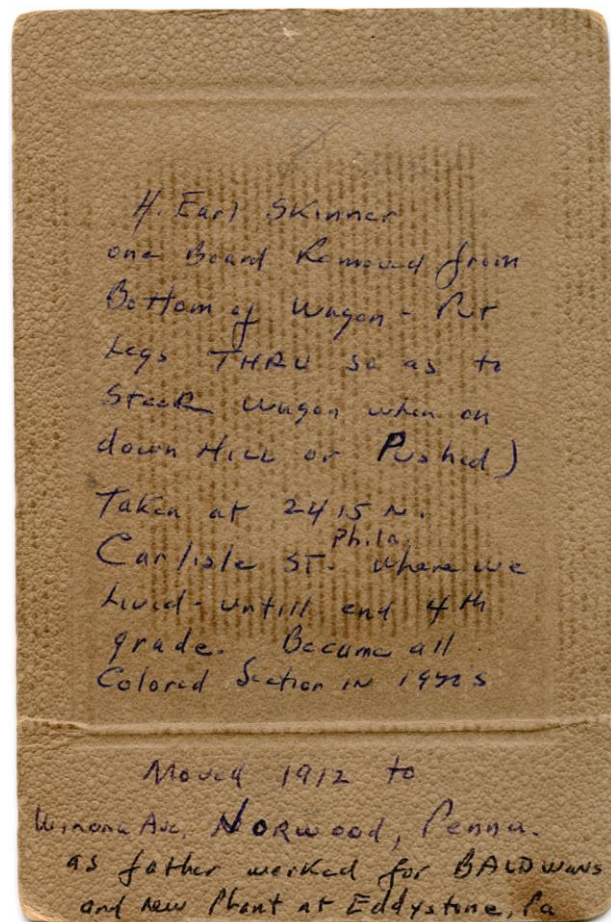 H. Earl Skinner
one Board Removed from
Bottom of Wagon - Put
Legs THRU so as to
Steer wagon when on
down HILL or Pushed)
Taken at 2415 N.
Phila.
Carlisle ST. where we
Lived - untill end 4th
grade. Became all
Colored Section in
Moved 1912 to
Winona Ave, NORWOOD, Penna.
as father worked for BALDWINS
and new Plant at Eddystone, Pa